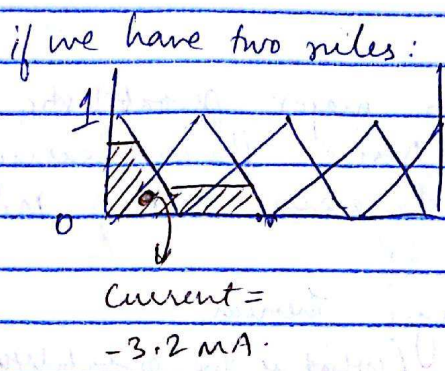 if we have two rules:
1
0
Current =
-3.2 mA.